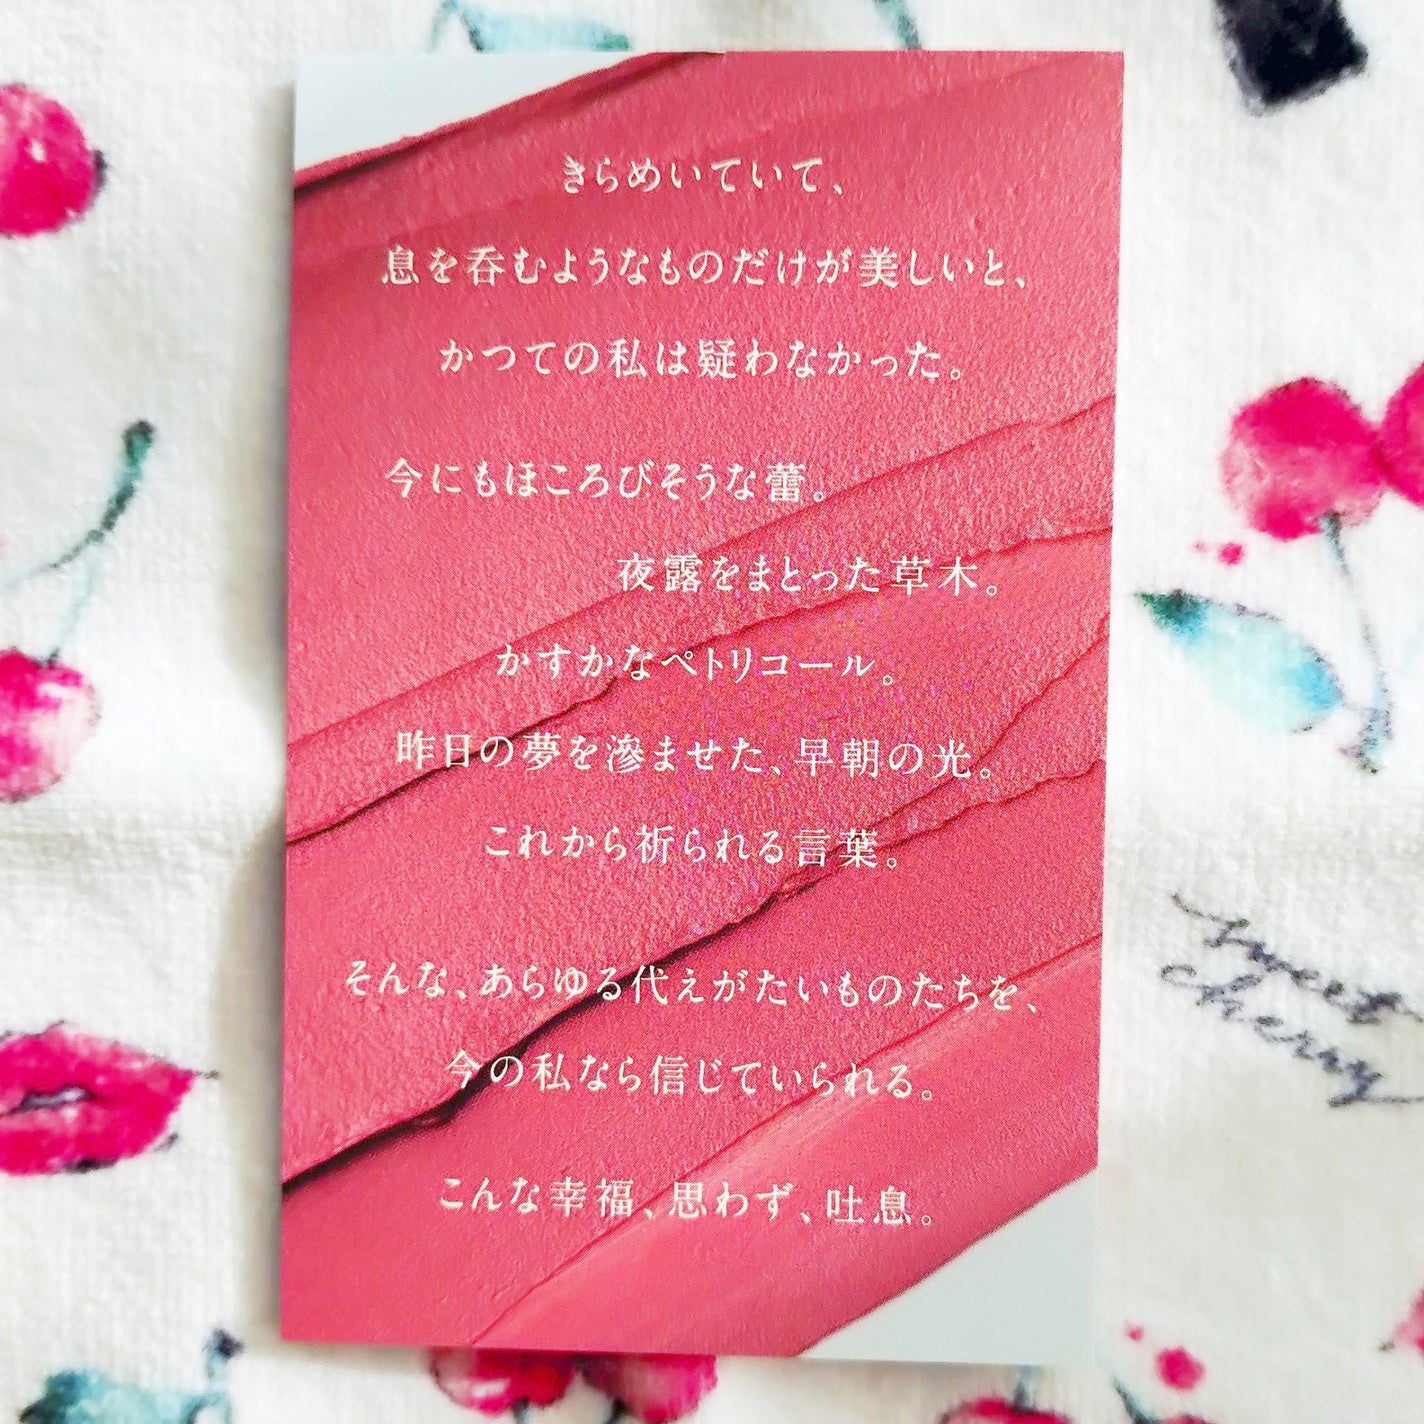 きらめいていて、
息を呑むようなものだけが美しいと、
かつての私は疑わなかった。
今にもほころびそうな蕾。
夜露をまとった草木。
かすかなペトリコール。
昨日の夢を滲ませた、早朝の光。
これから祈られる言葉。
そんな、あらゆる代えがたいものたちを、
今の私なら信じていられる。
こんな幸福、思わず、吐息。
sweet
cherry